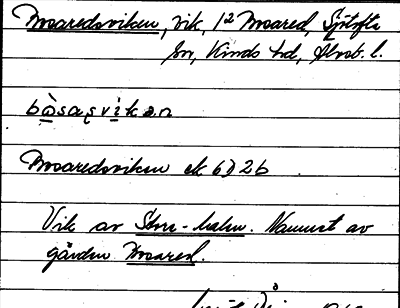 Bosaredsviken, vik, 1² Bosared, Sjötofta
sn, Kinds hd, Älvsb. l.
bòsasvìkən
Bosaredsviken ek 6D2b
Vik av Stora-halen. Namnet av
gården Bosared.